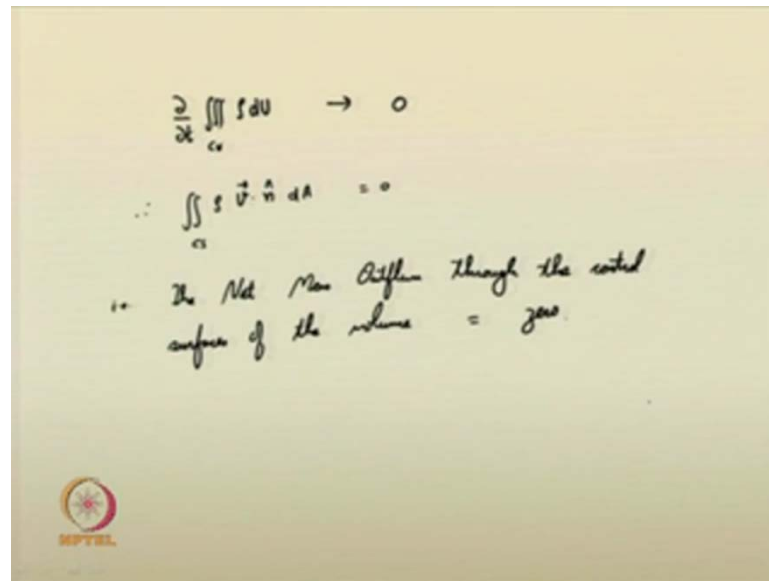 ∂/∂t ∭ ρ dU → 0
cv
∴ ∬ ρ v⃗ · n̂ dA = 0
cs
i.e. The Net Mass Outflux through the control
surfaces of the volume = zero.
NPTEL